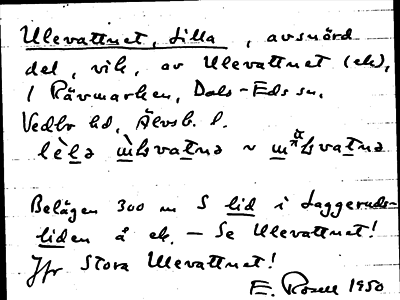 Ulevattnet, Lilla, avsnörd
del, vik, av Ulevattnet (ek),
i Rävmarken, Dals-Eds sn,
Vedbo hd, Älvsb. l.
Belägen 300 m S lid i Laggeruds-
liden å ek. – Se Ulevattnet!
Jfr Stora Ulevattnet!
E. Rosell 1950